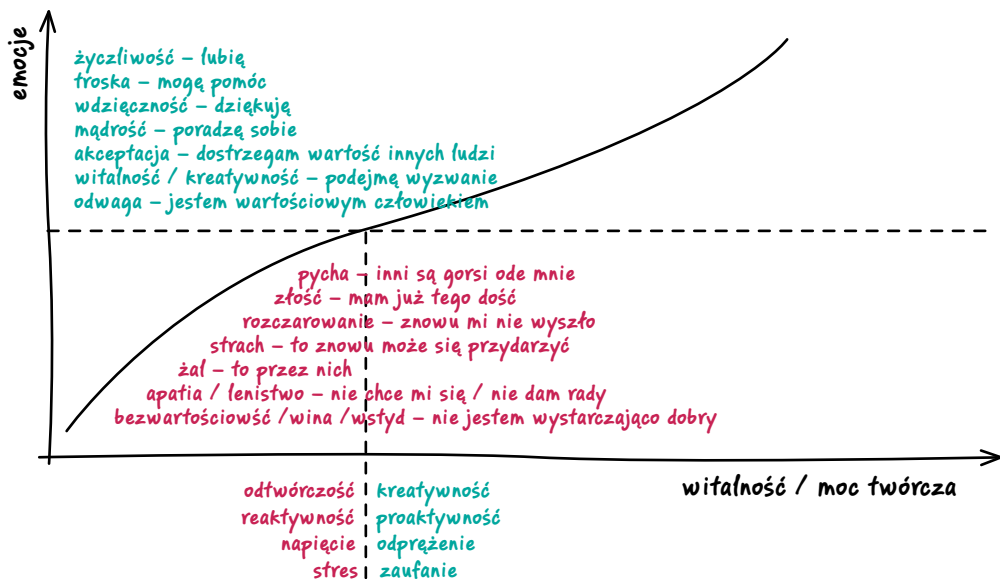 emocje
życzliwość – lubię
troska – mogę pomóc
wdzięczność – dziękuję
mądrość – poradzę sobie
akceptacja – dostrzegam wartość innych ludzi
witalność / kreatywność – podejmę wyzwanie
odwaga – jestem wartościowym człowiekiem
pycha – inni są gorsi ode mnie
złość – mam już tego dość
rozczarowanie – znowu mi nie wyszło
strach – to znowu może się przydarzyć
żal – to przez nich
apatia / lenistwo – nie chce mi się / nie dam rady
bezwartościowść /wina /wstyd – nie jestem wystarczająco dobry
witalność / moc twórcza
odtwórczość kreatywność
reaktywność proaktywność
napięcie odprężenie
stres zaufanie